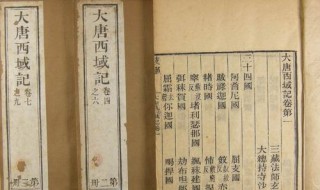 大唐西域記卷第一
三藏法師玄
大總持寺沙
三十四國
阿耆尼國 屈支國
跋祿迦國
赭時國 捍國
窣堵利瑟那國 颯秣建國
弭秣賀國
屈霜迦國 喝捍國
大唐西域記
卷四之六
第二冊
大唐西域記
卷七之九
第三冊